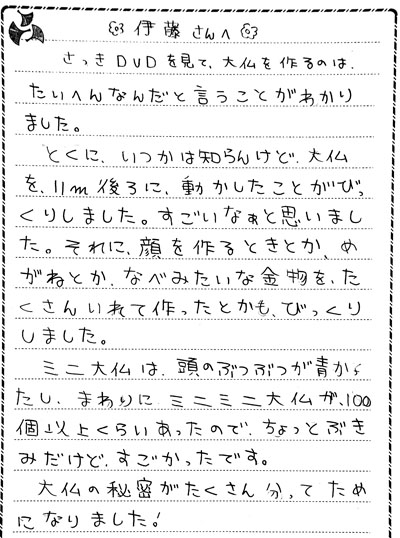 伊藤さんへ
さっきDVDを見て、大仏を作るのは、
たいへんなんだと言うことがわかり
ました。
とくに、いつかは知らんけど、大仏
を、11m後ろに、動かしたことがびっ
くりしました。すごいなぁと思いまし
た。それに、顔を作るときとか、め
がねとか、なべみたいな金物を、た
くさんいれて作ったとかも、びっくり
しました。
ミニ大仏は、頭のぶつぶつが青かっ
たし、まわりにミニミニ大仏が、100
個以上くらいあったので、ちょっとぶき
みだけど、すごかったです。
大仏の秘密がたくさん分ってため
になりました!